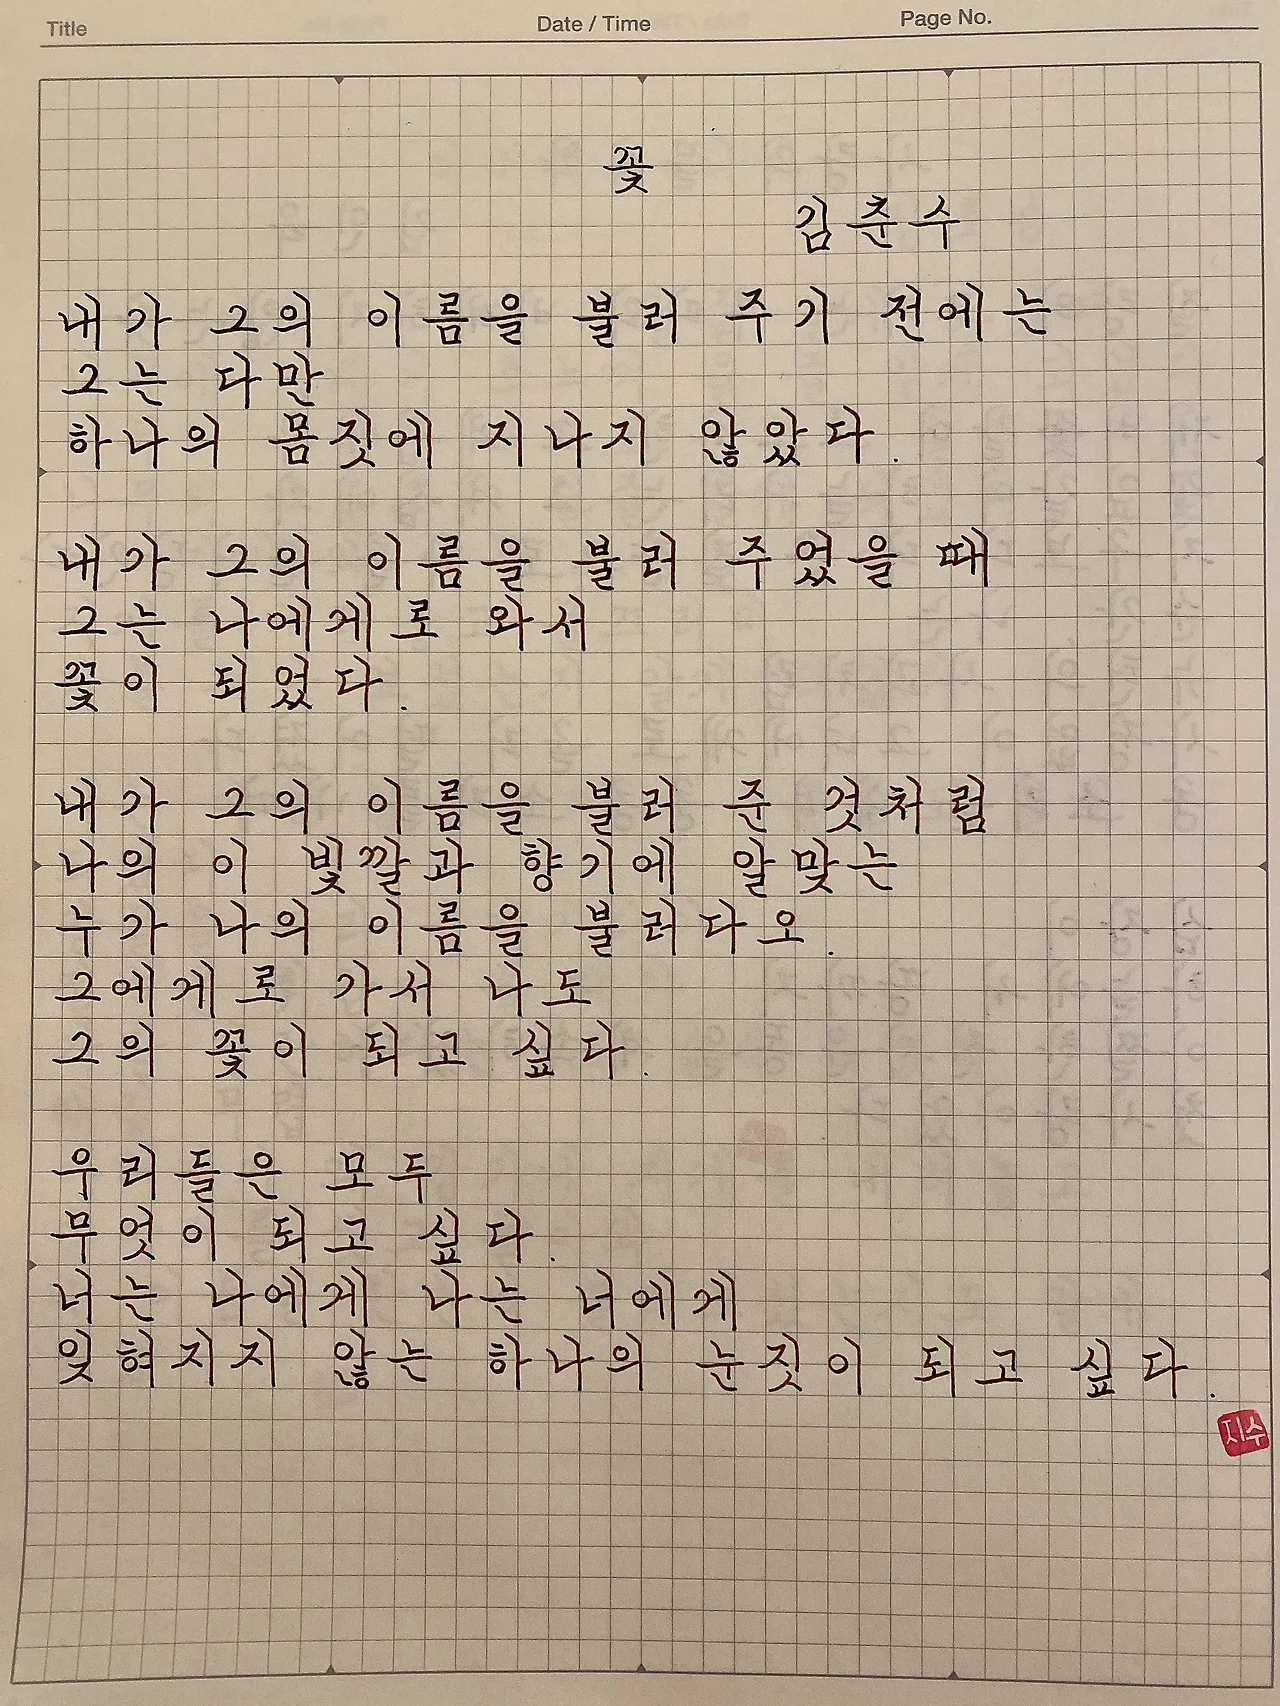 Title Date / Time Page No.
꽃
김춘수
내가 그의 이름을 불러 주기 전에는
그는 다만
하나의 몸짓에 지나지 않았다.
내가 그의 이름을 불러 주었을 때
그는 나에게로 와서
꽃이 되었다.
내가 그의 이름을 불러 준 것처럼
나의 이 빛깔과 향기에 알맞는
누가 나의 이름을 불러다오.
그에게로 가서 나도
그의 꽃이 되고 싶다.
우리들은 모두
무엇이 되고 싶다.
너는 나에게 나는 너에게
잊혀지지 않는 하나의 눈짓이 되고 싶다.
지수